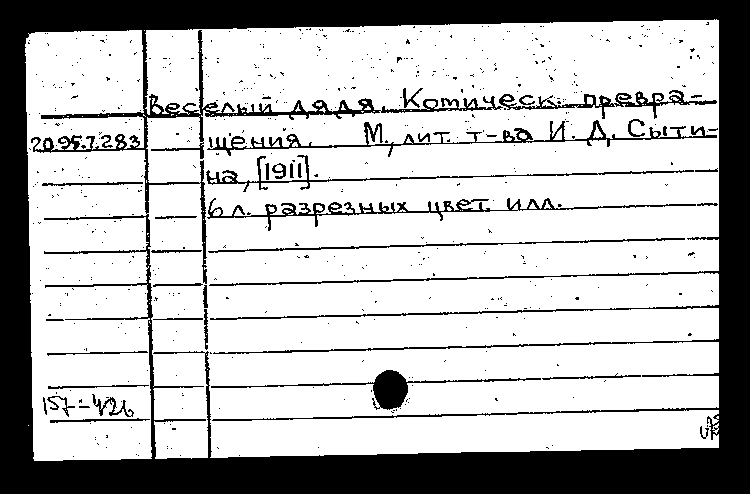 Веселый дядя. Комическ. превра-
20.95.7.283 щения. М., лит. т-ва И. Д. Сыти-
на, [1911].
6 л. разрезных цвет. илл.
157-426